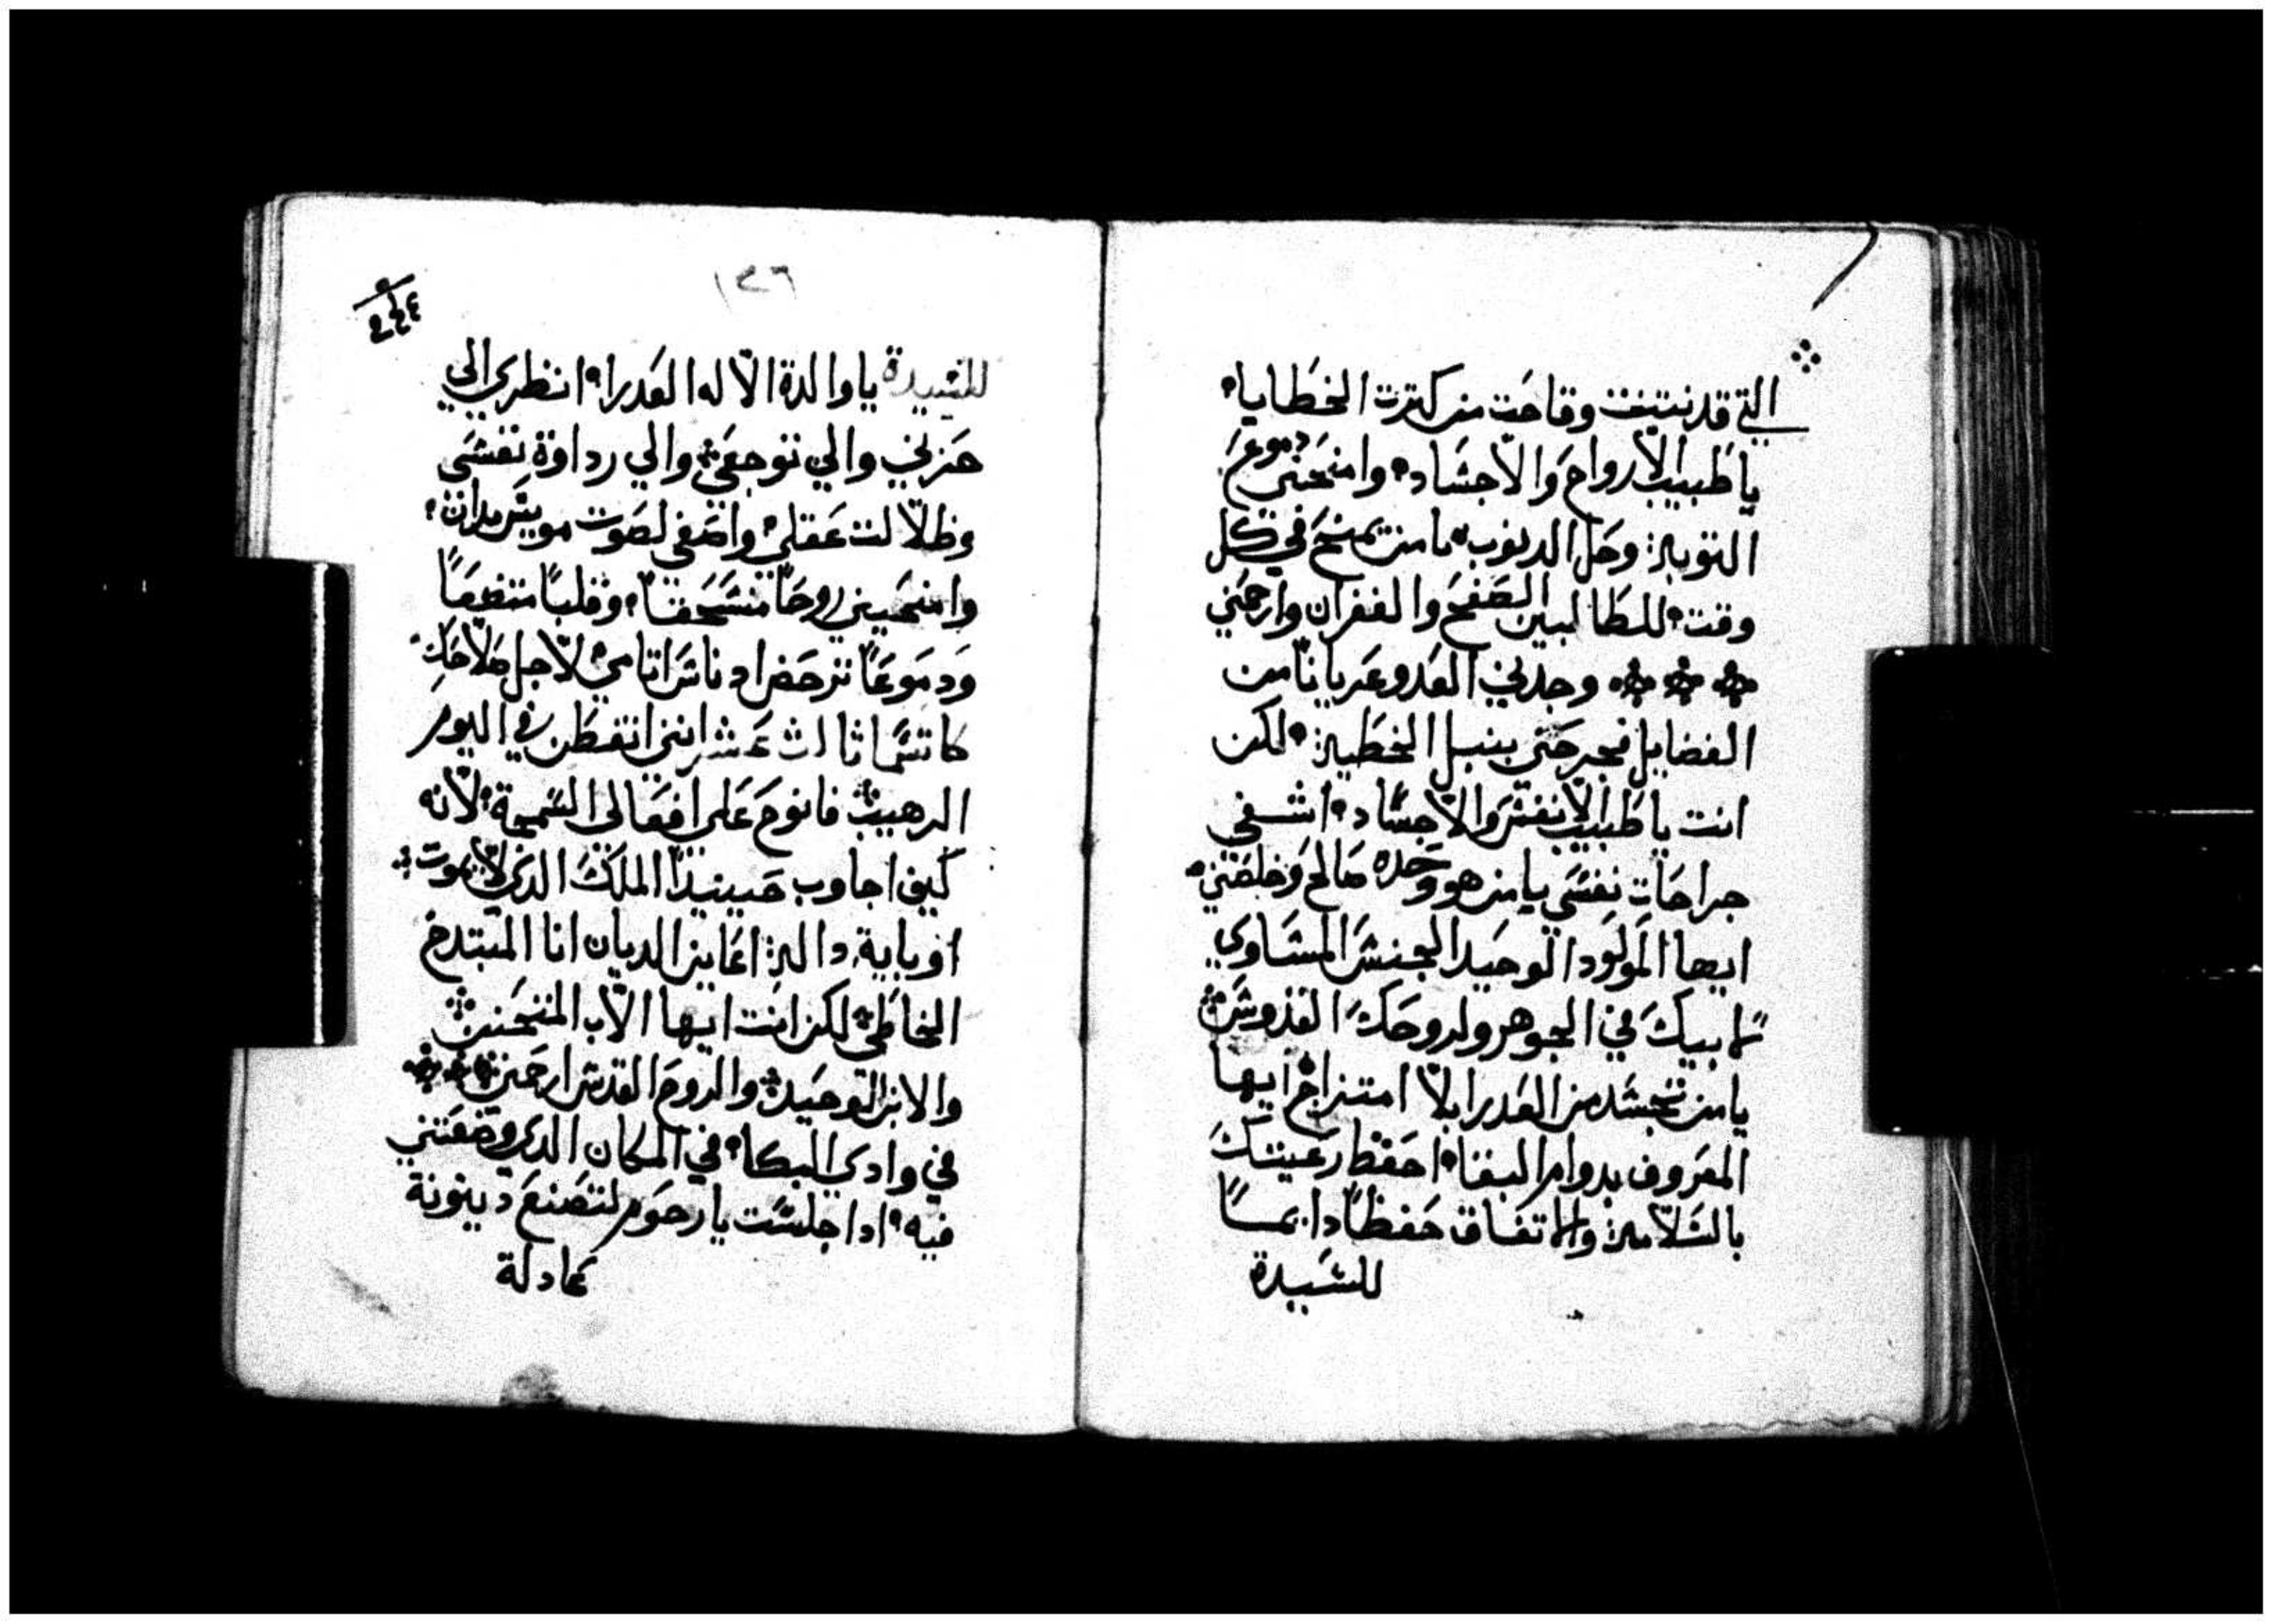 التي قد نتينت وقاحت من كترت الخطايا
يا طبيب الارواح والاجساد وامنحني دموع
التوبة وحل الدنوب يا من يمنح في كل
وقت للطالبين الصفح والغفران وارحمني
وجدني العدو عريانا من
الفضايل فجرحني بنبل الخطية لكن
انت يا طبيب الانفس والاجساد اشفي
جراحات نفسي يا من هو وحده صالح وخلصني
ايها المولود الوحيد الجنس المساوي
لابيك في الجوهر ولروحك القدوس
يا من تجسد من العدرا بلا امتزاج ايها
المعروف بدوام البقا احفظ رعيتك
بالسلامة والاتفاق حفظا دايما
للسيدة
١٢٦
للسيدة يا والدة الاله العدرا انظري الي
حزني والي توجعي والي رداوة نفسي
وظلالت عقلي واصغي لصوت
وامنحيني روحا منسحقا وقلبا متضعا
ودموعا ترحض ادناس اتامي لاجل صلاحك
كاتسما ثالث عشر انني اتفطن في اليوم
الرهيب فانوح على افعالي السمجة لانه
كيف اجاوب حينيدا الملك الدي لا يموت
او باية دالة اعاين الديان انا المبتدخ
الخاطي لكن انت ايها الاب المتحنن
والابن الوحيد والروح القدس ارحمني
في وادي البكا في المكان الدي وضعتني
فيه ادا جلست يا رحوم لتصنع دينونة
عادلة